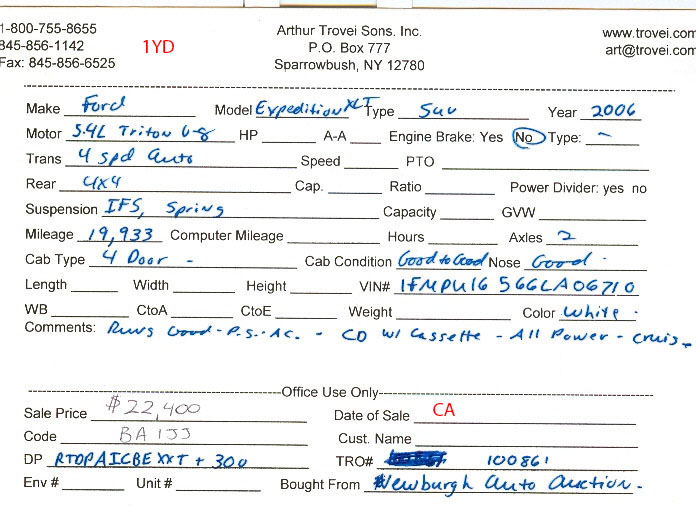 1-800-755-8655 Arthur Trovei Sons. Inc. www.trovei.com
845-856-1142 1YD P.O. Box 777 art@trovei.com
Fax: 845-856-6525 Sparrowbush, NY 12780
Make Ford Model Expedition XLT Type Suv Year 2006
Motor 5.4L Triton V-8 HP A-A Engine Brake: Yes No Type: -
Trans 4 spd auto Speed PTO
Rear 4x4 Cap. Ratio Power Divider: yes no
Suspension IFS, Spring Capacity GVW
Mileage 19,933 Computer Mileage Hours Axles 2
Cab Type 4 Door - Cab Condition Good to Good Nose Good.
Length Width Height VIN# 1FMPU16566LA06710
WB CtoA CtoE Weight Color White.
Comments: Runs Good - P.S. - AC. - CD w/ Cassette - All Power - Cruis
Office Use Only
Sale Price $22,400 Date of Sale CA
Code Cust. Name
DP RTOPAICBEXXT + 300 TRO# 100861
Env # Unit # Bought From Newburgh Auto Auction.